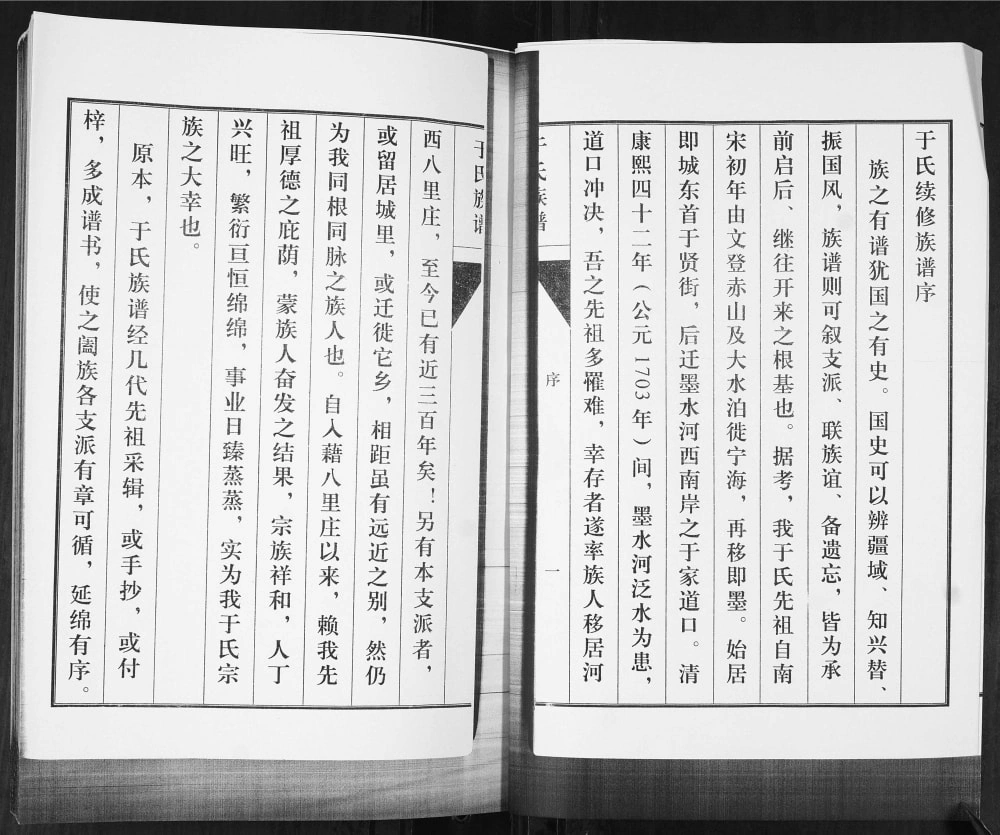 于氏续修族谱序
族之有谱犹国之有史。国史可以辨疆域、知兴替、
振国风，族谱则可叙支派、联族谊、备遗忘，皆为承
前启后、继往开来之根基也。据考，我于氏先祖自南
宋初年由文登赤山及大水泊徙宁海，再移即墨。始居
即城东首于贤街，后迁墨水河西南岸之于家道口。清
康熙四十二年（公元1703年）间，墨水河泛水为患，
道口冲决，吾之先祖多罹难，幸存者遂率族人移居河
于氏族谱
序
一
于氏族谱
西八里庄，至今已有近三百年矣！另有本支派者，
或留居城里，或迁徙它乡，相距虽有远近之别，然仍
为我同根同脉之族人也。自入藉八里庄以来，赖我先
祖厚德之庇荫，蒙族人奋发之结果，宗族祥和，人丁
兴旺，繁衍亘恒绵绵，事业日臻蒸蒸，实为我于氏宗
族之大幸也。
原本，于氏族谱经几代先祖采辑，或手抄，或付
梓，多成谱书，使之阖族各支派有章可循，延绵有序。